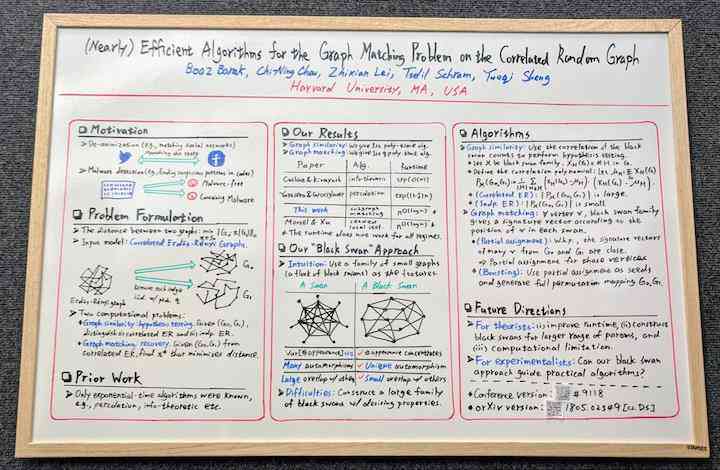 (Nearly) Efficient Algorithms for the Graph Matching Problem on the Correlated Random Graph
Boaz Barak, Chi-Ning Chou, Zhixian Lei, Tselil Schramm, Yueqi Sheng
Harvard University, MA, USA
Motivation
De-anonimization (e.g., matching social networks)
Malware detection (e.g., finding suspicious patterns in codes)
Malware-free
Containing Malware
Problem Formulation
The distance between two graphs:
Input model: Correlated Erdős-Rényi Graphs.
G0
G1
Erdős-Rényi graph
remove each edge
Two computational problems:
Graph similarity: hypothesis testing. Given (G0,G1),
distinguish correlated ER and indep. ER.
Graph matching: recovery. Given (G0,G1) from
correlated ER, find π* that minimizes distance.
Prior Work
Only exponential-time algorithms were known,
e.g., percolation, info-theoretic etc.
Our Results
Graph similarity: We give 1st poly-time alg.
Graph matching: We give 1st q-poly-time alg.
Paper Alg. runtime
Cullina & Kivayash info-theoretic exp(O(n))
Yartseva & Grossglauser percolation
This work subgraph matching n^O(log n)
Mossel & Xu seeded local stat. n^O(log n)
The runtime does not work for all regimes.
Our "Black Swan" Approach
Intuition: Use a family of small graphs
(a flock of black swans) as the features.
A Swan A Black Swan
Var[#appearance] #appearance concentrates
Many automorphism Unique automorphism
Large overlap w/ others Small overlap w/ others
Difficulties: Construct a large family
of black swans w/ desiring properties.
Algorithms
Graph similarity: Use the correlation of the black
swan counts to perform hypothesis testing.
Let H be black swan family. X_H(G) = # H in G.
Define the correlation polynomial:
(Correlated ER): |P_H(G0,G1)| is large.
(Indp. ER): |P_H(G0,G1)| is small.
Graph matching: ∀ vertex v, black swan family
gives a signature vector according to the
position of v in each swan.
(Partial assignment): W.h.p., the signature vectors
of many v from G0 and G1 are close.
⇒ Partial assignment for these vertices
(Boosting): Use partial assignment as seeds
and generate full permutation mapping G0, G1.
Future Directions
For theorists: (i) improve runtime, (ii) construct
black swans for larger range of params, and
(iii) computational limitation.
For experimentalists: Can our black swan
approach guide practical algorithms?
Conference version: #9118
arXiv version: 1805.02349 [cs.DS]